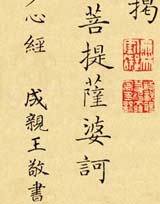 揭
菩提薩婆訶
心經
成親王敬書